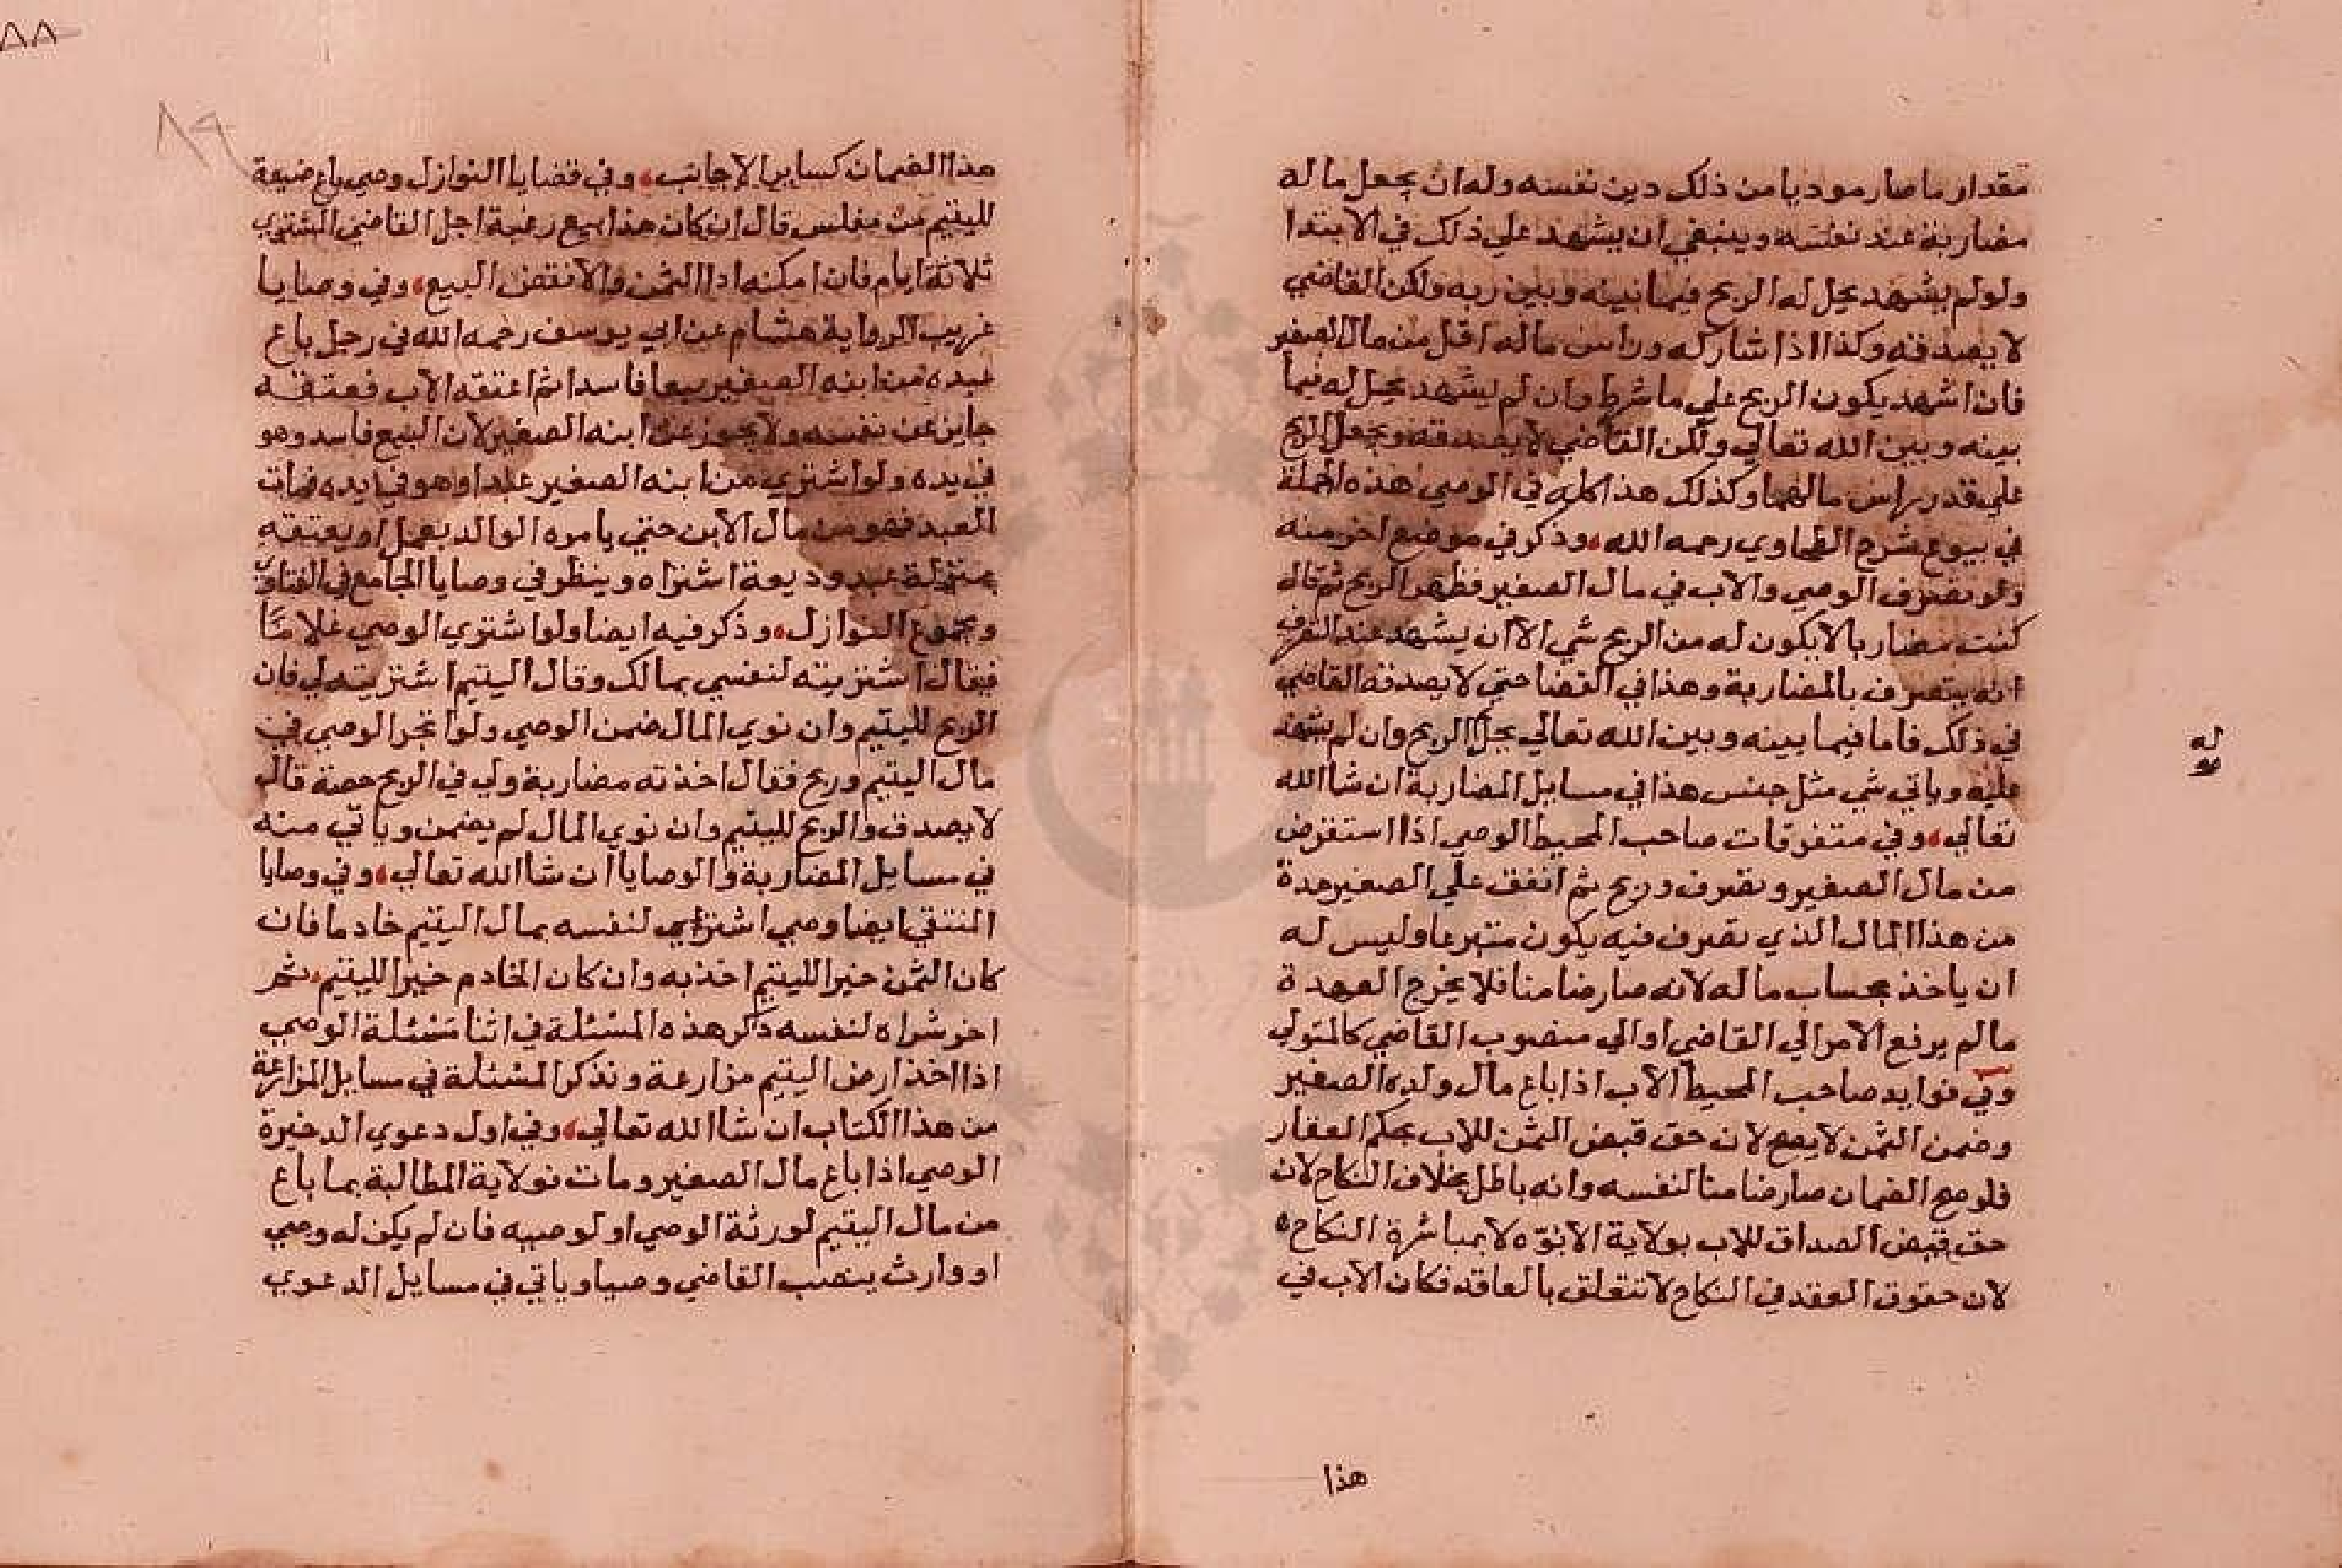 مقدار ما صار موديا من ذلك دين نفسه وله ان يجعل ماله
مضاربة عند نفسه وينبغي ان يشهد علي ذلك في الابتدا
ولو لم يشهد يحل له الربح فيما بينه وبين ربه ولكن القاضي
لا يصدقه وكذا اذا شاركه وراس ماله اقل من مال الصغير
فان اشهد يكون الربح علي ما شرط وان لم يشهد يحل له فيما
بينه وبين الله تعالي ولكن القاضي لا يصدقه ويجعل الربح
علي قدر راس مالهما وكذلك هذا كله في الوصي هذه الجملة
في بيوع شرح الطحاوي رحمه الله، وذكر في موضع اخر منه
ولو تصرف الوصي والاب في مال الصغير فظهر الربح ثم قال
كنت مضاربا لا يكون له من الربح شي الا ان يشهد عند التصرف
انه يتصرف بالمضاربة وهذا في القضا حتي لا يصدقه القاضي
في ذلك فاما فيما بينه وبين الله تعالي يحل الربح وان لم يشهد
له
عليه وياتي شي مثل جنس هذا في مسايل المضاربة ان شا الله
تعالي، وفي متفرقات صاحب المحيط الوصي اذا استقرض
من مال الصغير وتصرف وربح ثم انفق علي الصغير مدة
من هذا المال الذي تصرف فيه يكون متبرعا وليس له
ان ياخذ بحساب ماله لانه صار ضامنا فلا يخرج العهدة
ما لم يرفع الامر الي القاضي او الي منصوب القاضي كالمتولي
وفي فوايد صاحب المحيط الاب اذا باع مال ولده الصغير
وضمن الثمن لا يصح لان حق قبض الثمن للاب بحكم العقار
فلو صح الضمان صار ضامنا لنفسه وانه باطل بخلاف النكاح لان
حق قبض الصداق للاب بولاية الابوّه لا بمباشرة النكاح ه
لان حقوق العقد في النكاح لا تتعلق بالعاقد فكان الاب في
هذا
٨٨
٨٩
هذا الضمان كساير الاجانب، وفي قضايا النوازل وصي باع ضيعة
لليتيم من مفلس قال ان كان هذا بيع رغبة اجل القاضي المشتري
ثلاثة ايام فان امكنه ادا الثمن والا نقض البيع، وفي وصايا
غريب الرواية هشام عن ابي يوسف رحمه الله في رجل باع
عبده من ابنه الصغير بيعا فاسدا ثم اعتقه الاب فعتقه
جايز عن نفسه ولا يجوز عن ابنه الصغير لان البيع فاسد وهو
في يده ولو اشتري من ابنه الصغير عبدا وهو في يده فمات
العبد فهو من مال الابن حتي يامره الوالد بعمل او يعتقه
بمنزلة عبد وديعة اشتراه وينظر في وصايا الجامع في الفتاوي
ومجموع النوازل، وذكر فيه ايضا ولو اشتري الوصي غلامًا
فقال اشتريته لنفسي بمالك وقال اليتيم اشتريته لي فان
الربح لليتيم وان نوي المال ضمن الوصي ولو اتجر الوصي في
مال اليتيم وربح فقال اخذته مضاربة ولي في الربح حصة قال
لا يصدق والربح لليتيم وان نوي المال لم يضمن وياتي منه
في مسايل المضاربة والوصايا ان شا الله تعالي، وفي وصايا
المنتقي ايضا وصي اشتري لنفسه بمال اليتيم خادما فان
كان الثمن خيرا لليتيم اخذ به وان كان الخادم خيرا لليتيم، ثم
اخر شراه لنفسه ذكر هذه المسئلة في اثنا مسئلة الوصي
اذا اخذ ارض اليتيم مزارعة ونذكر المسئلة في مسايل المزارعة
من هذا الكتاب ان شا الله تعالي، وفي اول دعوي الدخيرة
الوصي اذا باع مال الصغير ومات فولاية المطالبة بما باع
من مال اليتيم لورثة الوصي او لوصيه فان لم يكن له وصي
او وارث ينصب القاضي وصيا وياتي في مسايل الدعوي